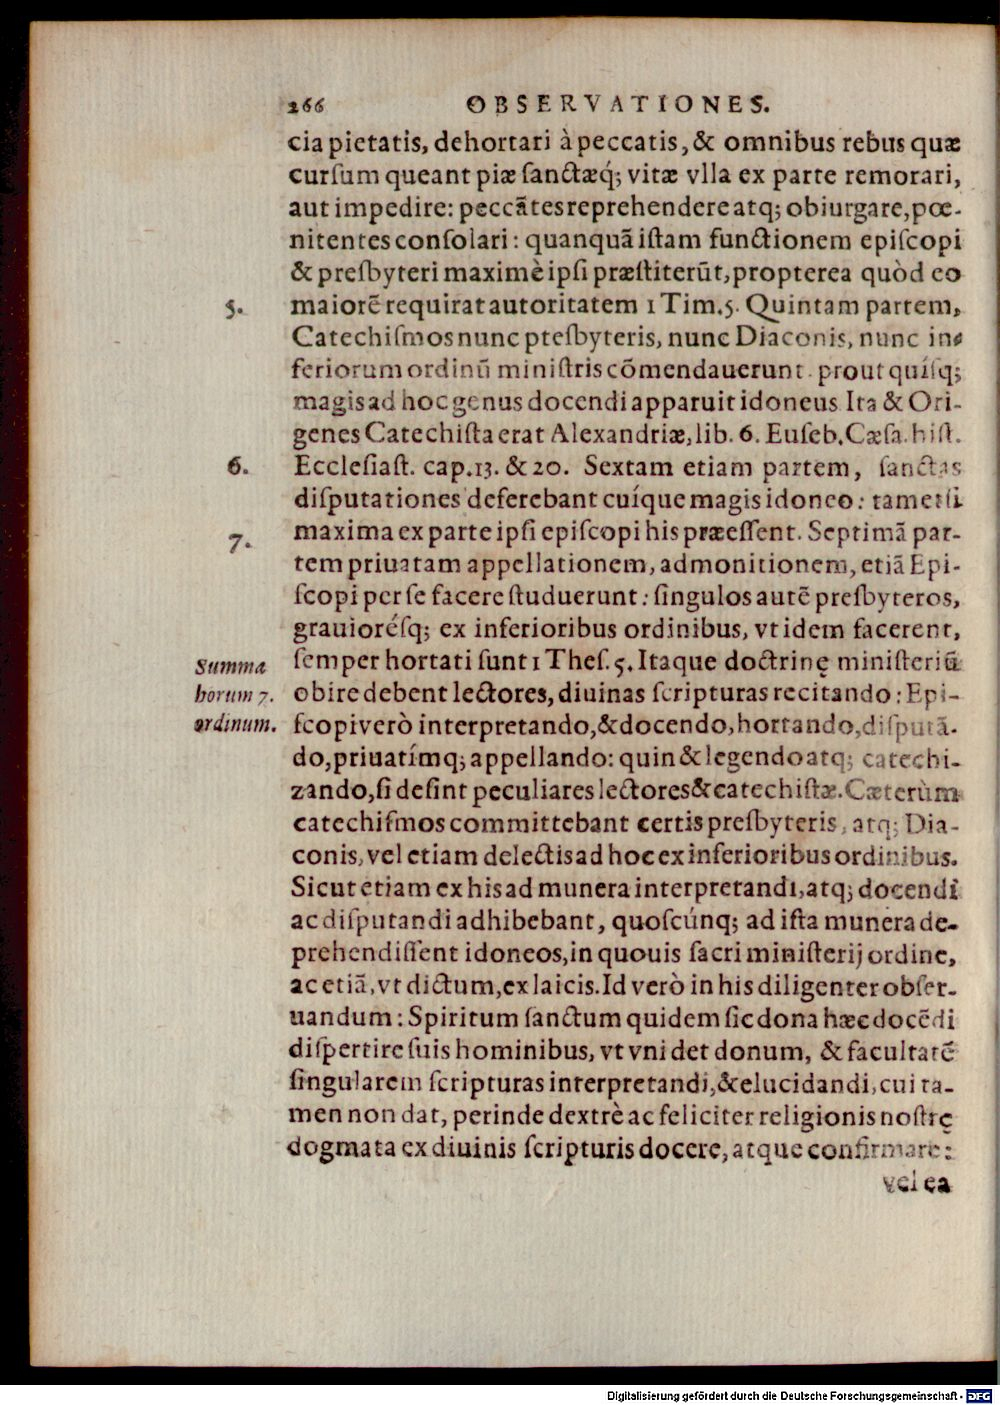 266 OBSERVATIONES.
cia pietatis, dehortari à peccatis, & omnibus rebus quæ
curſum queant piæ ſanctæq́; vitæ vlla ex parte remorari,
aut impedire: peccãtes reprehendere atq; obiurgare, pœ-
nitentes conſolari: quanquã iſtam functionem epiſcopi
& preſbyteri maximè ipſi præſtiterũt, propterea quòd eo
5. maiorẽ requirat autoritatem 1 Tim. 5. Quintam partem,
Catechiſmos nunc pteſbyteris, nunc Diaconis, nunc in-
feriorum ordinũ miniſtris cõmendauerunt prout quíſq;
magis ad hoc genus docendi apparuit idoneus Ita & Ori-
genes Catechiſta erat Alexandriæ, lib. 6. Euſeb. Cæſa. hiſt.
6. Eccleſiaſt. cap. 13. & 20. Sextam etiam partem, ſanctas
diſputationes deferebant cuíque magis idoneo: tametſi
maxima ex parte ipſi epiſcopi his præeſſent. Septimã par-
7. tem priuatam appellationem, admonitionem, etiã Epi-
ſcopi per ſe facere ſtuduerunt: ſingulos autẽ preſbyteros,
grauioréſq; ex inferioribus ordinibus, vt idem facerent,
Summa ſemper hortati ſunt 1 Theſ. 5. Itaque doctrinę miniſteriũ
horum 7. obire debent lectores, diuinas ſcripturas recitando: Epi-
ordinum. ſcopi verò interpretando, & docendo, hortando, diſputã-
do, priuatímq; appellando: quin & legendo atq; catechi-
zando, ſi deſint peculiares lectores & catechiſtæ. Cæterùm
catechiſmos committebant certis preſbyteris, atq; Dia-
conis, vel etiam delectis ad hoc ex inferioribus ordinibus.
Sicut etiam ex his ad munera interpretandi, atq; docendi
ac diſputandi adhibebant, quoſcúnq; ad iſta munera de-
prehendiſſent idoneos, in quouis ſacri miniſterij ordine,
ac etiã, vt dictum, ex laicis. Id verò in his diligenter obſer-
uandum: Spiritum ſanctum quidem ſic dona hæc docẽdi
diſpertire ſuis hominibus, vt vni det donum, & facultatẽ
ſingularem ſcripturas interpretandi, & elucidandi, cui ta-
men non dat, perinde dextrè ac feliciter religionis noſtrę
dogmata ex diuinis ſcripturis docere, atque confirmare:
vel ea
Digitalisierung gefördert durch die Deutsche Forschungsgemeinschaft - DFG